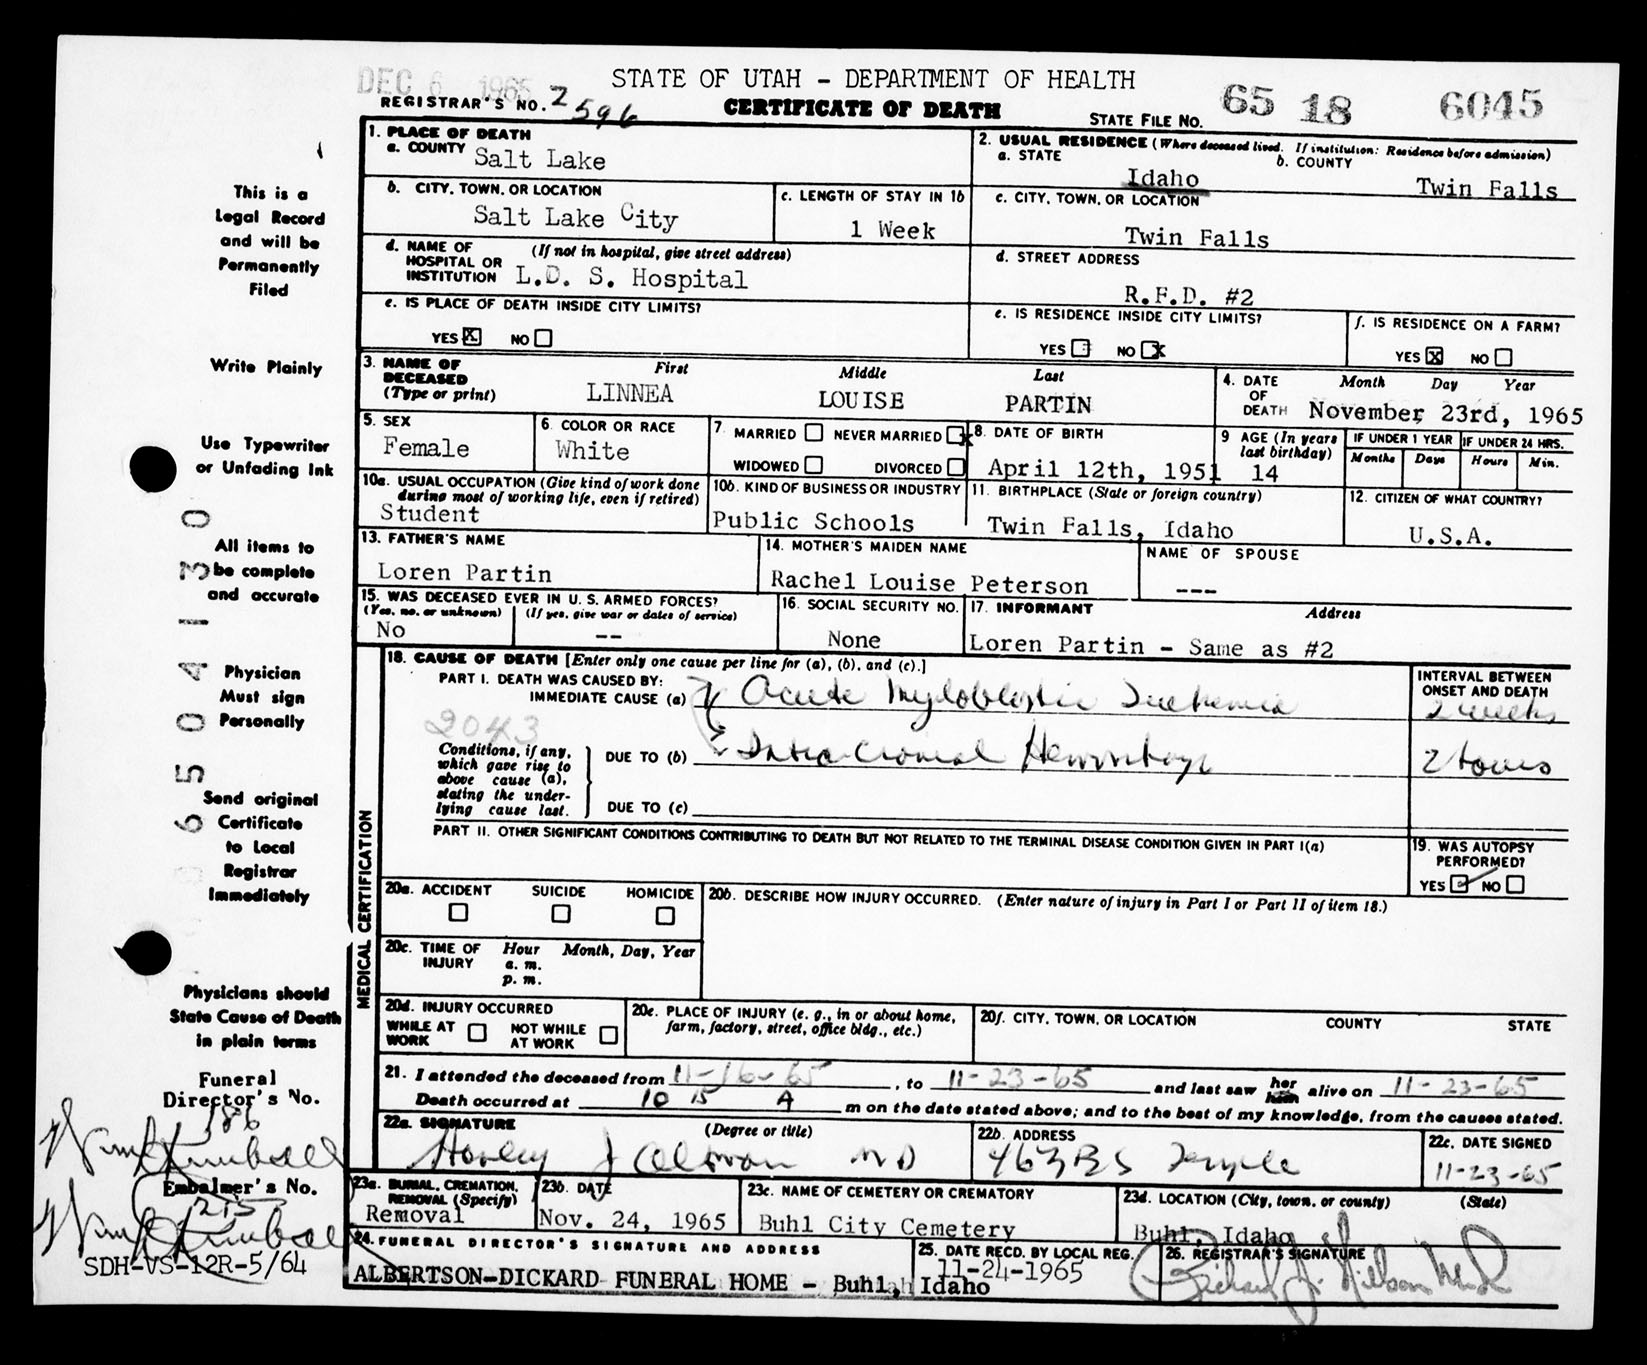 DEC 6 1965
STATE OF UTAH - DEPARTMENT OF HEALTH
REGISTRAR'S NO. 2596
CERTIFICATE OF DEATH
STATE FILE NO. 65 18 6045
This is a
Legal Record
and will be
Permanently
Filed
Write Plainly
Use Typewriter
or Unfading Ink
All items to
be complete
and accurate
Physician
Must sign
Personally
Send original
Certificate
to Local
Registrar
Immediately
Physicians should
State Cause of Death
in plain terms
Funeral
Director's No.
186
Embalmer's No.
215
SDH-VS-12R-5/64
1. PLACE OF DEATH
a. COUNTY Salt Lake
2. USUAL RESIDENCE (Where deceased lived. If institution: Residence before admission)
a. STATE Idaho
b. COUNTY Twin Falls
b. CITY, TOWN, OR LOCATION
Salt Lake City
c. LENGTH OF STAY IN 1b
1 Week
c. CITY, TOWN, OR LOCATION
Twin Falls
d. NAME OF HOSPITAL OR INSTITUTION (If not in hospital, give street address)
L.D. S. Hospital
d. STREET ADDRESS
R.F.D. #2
e. IS PLACE OF DEATH INSIDE CITY LIMITS?
YES X NO
e. IS RESIDENCE INSIDE CITY LIMITS?
YES NO X
f. IS RESIDENCE ON A FARM?
YES X NO
3. NAME OF DECEASED (Type or print)
First Middle Last
LINNEA LOUISE PARTIN
4. DATE OF DEATH Month Day Year
November 23rd, 1965
5. SEX
Female
6. COLOR OR RACE
White
7. MARRIED NEVER MARRIED X
WIDOWED DIVORCED
8. DATE OF BIRTH
April 12th, 1951
9 AGE (In years last birthday)
14
IF UNDER 1 YEAR IF UNDER 24 HRS.
Months Days Hours Min.
10a. USUAL OCCUPATION (Give kind of work done during most of working life, even if retired)
Student
10b. KIND OF BUSINESS OR INDUSTRY
Public Schools
11. BIRTHPLACE (State or foreign country)
Twin Falls, Idaho
12. CITIZEN OF WHAT COUNTRY?
U.S.A.
13. FATHER'S NAME
Loren Partin
14. MOTHER'S MAIDEN NAME
Rachel Louise Peterson
NAME OF SPOUSE
---
15. WAS DECEASED EVER IN U. S. ARMED FORCES?
(Yes, no, or unknown) (If yes, give war or dates of service)
No --
16. SOCIAL SECURITY NO.
None
17. INFORMANT Address
Loren Partin - Same as #2
MEDICAL CERTIFICATION
18. CAUSE OF DEATH [Enter only one cause per line for (a), (b), and (c).]
INTERVAL BETWEEN ONSET AND DEATH
PART I. DEATH WAS CAUSED BY:
IMMEDIATE CAUSE (a) Acute Myloblastic Leukemia 2 weeks
2043
Conditions, if any, which gave rise to above cause (a), stating the underlying cause last.
DUE TO (b) Intra-Cranial Hemorrhage 2 hours
DUE TO (c)
PART II. OTHER SIGNIFICANT CONDITIONS CONTRIBUTING TO DEATH BUT NOT RELATED TO THE TERMINAL DISEASE CONDITION GIVEN IN PART I(a)
19. WAS AUTOPSY PERFORMED?
YES NO
20a. ACCIDENT SUICIDE HOMICIDE
20b. DESCRIBE HOW INJURY OCCURRED. (Enter nature of injury in Part I or Part II of item 18.)
20c. TIME OF INJURY Hour Month, Day, Year
a. m.
p. m.
20d. INJURY OCCURRED
WHILE AT WORK NOT WHILE AT WORK
20e. PLACE OF INJURY (e. g., in or about home, farm, factory, street, office bldg., etc.)
20f. CITY, TOWN, OR LOCATION COUNTY STATE
21. I attended the deceased from 11-16-65, to 11-23-65 and last saw her him alive on 11-23-65
Death occurred at 10 15 A m on the date stated above; and to the best of my knowledge, from the causes stated.
22a. SIGNATURE (Degree or title)
MD
22b. ADDRESS
22c. DATE SIGNED
11-23-65
23a. BURIAL, CREMATION, REMOVAL (Specify)
Removal
23b. DATE
Nov. 24, 1965
23c. NAME OF CEMETERY OR CREMATORY
Buhl City Cemetery
23d. LOCATION (City, town, or county) (State)
Buhl, Idaho
24. FUNERAL DIRECTOR'S SIGNATURE AND ADDRESS
ALBERTSON-DICKARD FUNERAL HOME - Buhl, Idaho
25. DATE RECD. BY LOCAL REG.
11-24-1965
26. REGISTRAR'S SIGNATURE